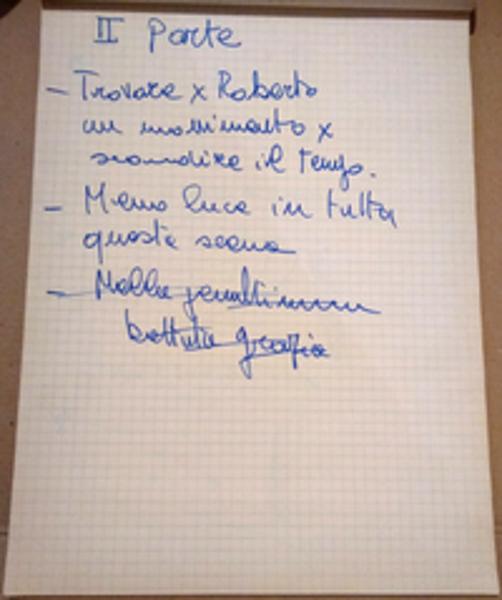 II Parte
- Trovare x Roberto
un movimento x
scandire il tempo.
- Meno luce in tutta
questa scena
- Nella penultima
battuta grafia